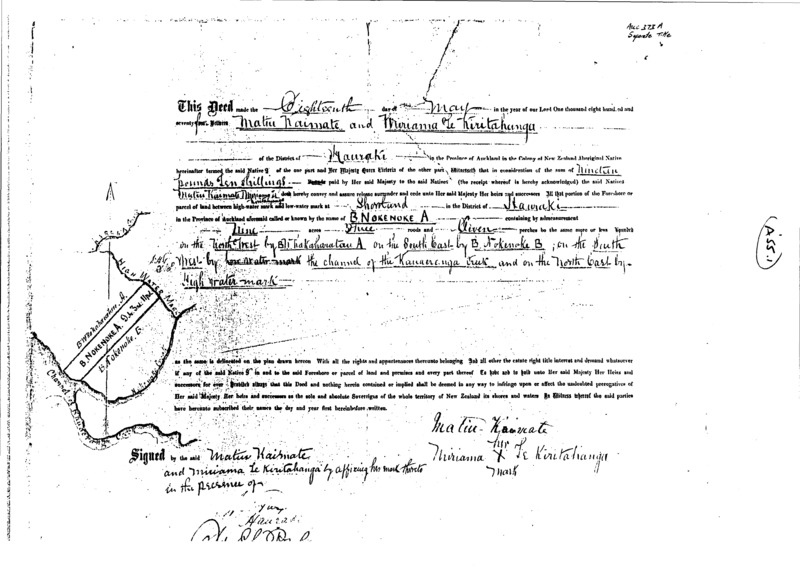 Acc 373 A
Separate Title
This Deed made the Eighteenth day of May in the year of our Lord One thousand eight hundred and
seventy four Between Matiu Kaimate and Miriama Te Kiritahanga
of the District of Hauraki in the Province of Auckland in the Colony of New Zealand Aboriginal Native
hereinafter termed the said Natives of the one part and Her Majesty Queen Victoria of the other part Witnesseth that in consideration of the sum of Nineteen
pounds Ten Shillings paid by Her said Majesty to the said Natives (the receipt whereof is hereby acknowledged) the said Natives
Matiu Kaimate Miriama Te K doth hereby convey and assure release surrender and cede unto Her said Majesty Her heirs and successors All that portion of the Foreshore or
parcel of land between high-water mark and low-water mark at Shortland in the District of Hauraki
in the Province of Auckland aforesaid called or known by the name of B. NOKENOKE A containing by admeasurement
Nine acres Three roods and Eleven perches be the same more or less Bounded
on the North West by B. Whakaharatau A on the South East by B. Nokenoke B; on the South
West by low water mark the channel of the Kauaeranga Creek and on the North East by
High Water mark
HIGH WATER Mark
B. Whakaharatau A.
B. NOKENOKE A. 9. 3. 11
B. Nokenoke B.
Channel of
as the same is delineated on the plan drawn hereon With all the rights and appurtenances thereunto belonging And all other the estate right title interest and demand whatsoever
if any of the said Natives in and to the said Foreshore or parcel of land and premises and every part thereof To have and to hold unto Her said Majesty Her Heirs and
successors for ever Provided always that this Deed and nothing herein contained or implied shall be deemed in any way to infringe upon or affect the undoubted prerogatives of
Her said Majesty Her heirs and successors as the sole and absolute Sovereigns of the whole territory of New Zealand its shores and waters In Witness whereof the said parties
have hereunto subscribed their names the day and year first hereinbefore written.
Matiu Kaimate
her
Miriama X Te Kiritahanga
mark
Signed by the said Matiu Kaimate
and Miriama Te Kiritahanga by affixing his mark thereto
in the presence of
Hauraki
(A55.1)